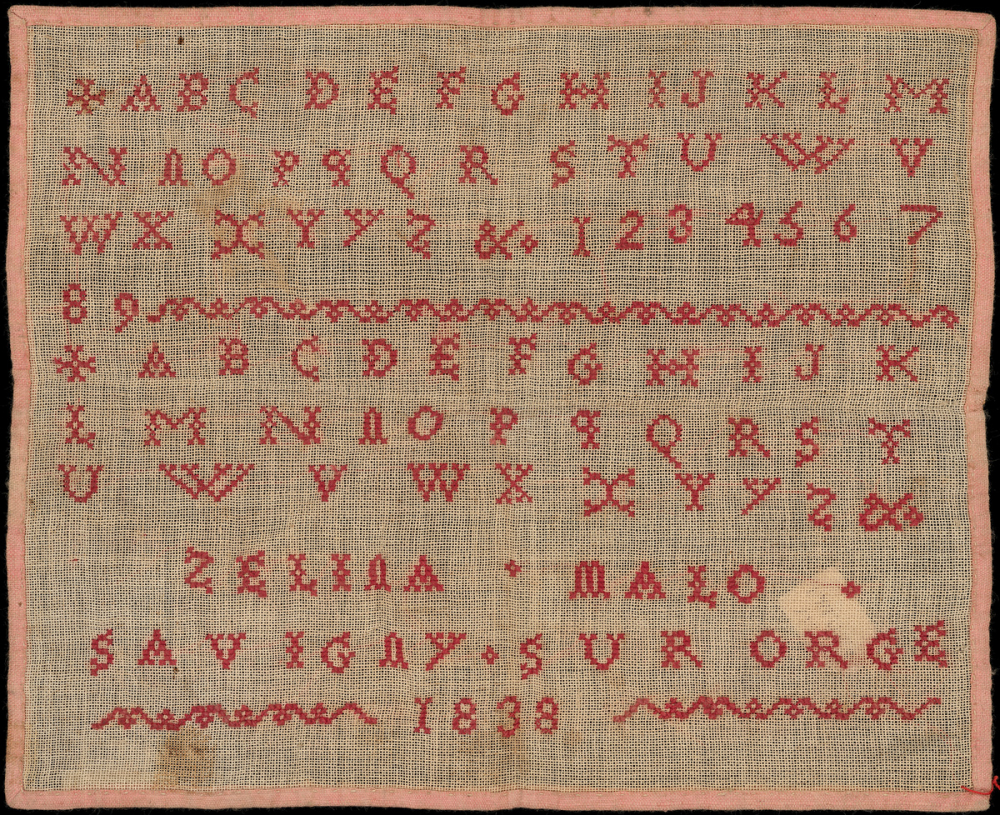 A B C D E F G H I J K L M
N N O P q Q R S T U W V
W X X Y Y Z &. 1 2 3 4 5 6 7
8 9
A B C D E F G H I J K
L M N N O P q Q R S T
U W V W X X Y Y Z &.
ZELINA MALO
SAVIGNY SUR ORGE
1838